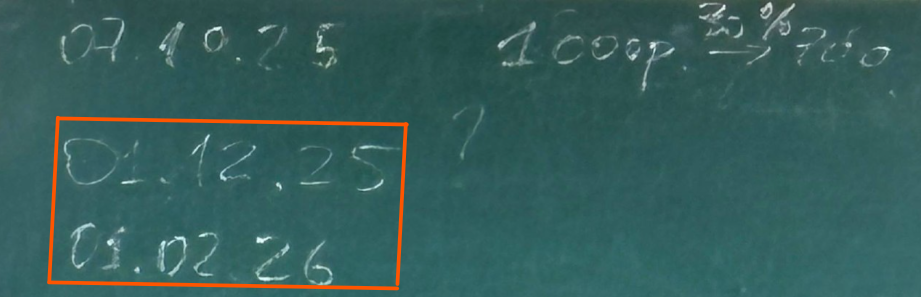 07.10.25 1000р. 30% → 700
01.12.25 ?
01.02.26